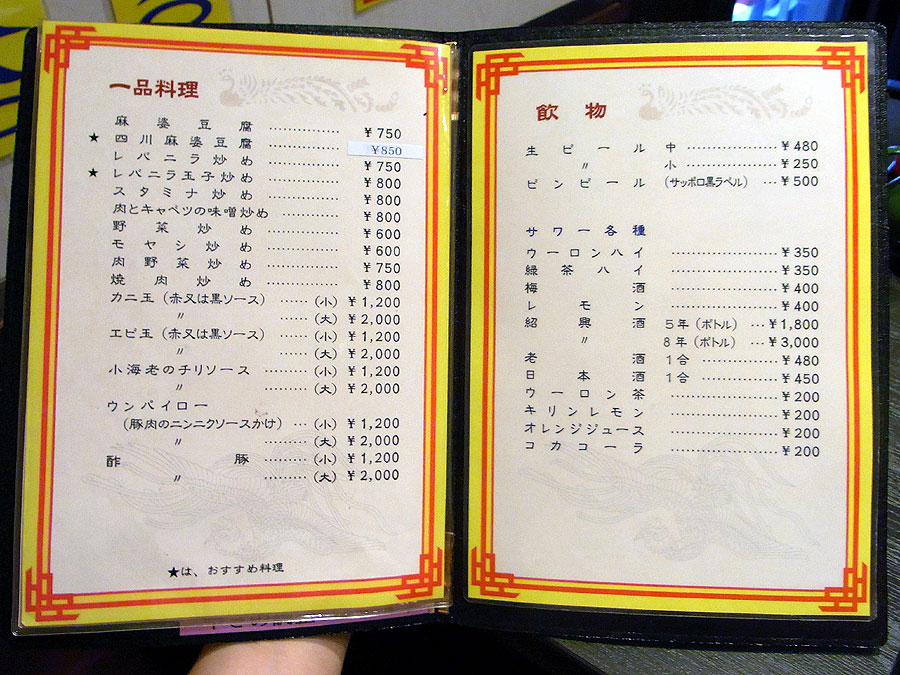 一品料理
麻婆豆腐 ……………… ¥750
★ 四川麻婆豆腐 ……………… ¥850
レバニラ炒め ……………… ¥750
★ レバニラ玉子炒め ……………… ¥800
スタミナ炒め ……………… ¥800
肉とキャベツの味噌炒め ………… ¥800
野菜炒め ……………… ¥600
モヤシ炒め ……………… ¥600
肉野菜炒め ……………… ¥750
焼肉炒め ……………… ¥800
カニ玉(赤又は黒ソース) ……(小) ¥1,200
〃 ……(大) ¥2,000
エビ玉(赤又は黒ソース) ……(小) ¥1,200
〃 ………(大) ¥2,000
小海老のチリソース ………(小) ¥1,200
〃 ………(大) ¥2,000
ウンパイロー
(豚肉のニンニクソースかけ) …(小) ¥1,200
〃 ……(大) ¥2,000
酢豚 ………(小) ¥1,200
〃 ………(大) ¥2,000
★は、おすすめ料理
飲物
生ビール 中 ……………… ¥480
〃 小 ……………… ¥250
ビンビール (サッポロ黒ラベル) … ¥500
サワー各種
ウーロンハイ ……………… ¥350
緑茶ハイ ……………… ¥350
梅酒 ……………… ¥400
レモン ……………… ¥400
紹興酒 5年(ボトル) … ¥1,800
〃 8年(ボトル) … ¥3,000
老酒 1合 ……………… ¥480
日本酒 1合 ……………… ¥450
ウーロン茶 ……………… ¥200
キリンレモン ……………… ¥200
オレンジジュース ……………… ¥200
コカコーラ ……………… ¥200